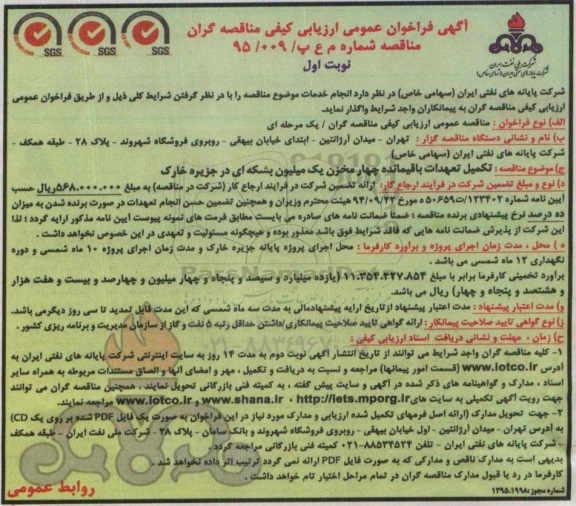 آگهی فراخوان عمومی ارزیابی کیفی مناقصه گران
مناقصه شماره م ع پ/ ۰۰۹/ ۹۵
نوبت اول
SGS SGS SGS
شرکت ملی نفت ایران
شرکت پایانه های نفتی ایران (سهامی خاص)
شرکت پایانه های نفتی ایران (سهامی خاص) در نظر دارد انجام خدمات موضوع مناقصه را با در نظر گرفتن شرایط کلی ذیل و از طریق فراخوان عمومی
ارزیابی کیفی مناقصه گران به پیمانکاران واجد شرایط واگذار نماید.
الف) نوع فراخوان : مناقصه عمومی ارزیابی کیفی مناقصه گران / یک مرحله ای
ب) نام و نشانی دستگاه مناقصه گزار : تهران - میدان آرژانتین - ابتدای خیابان بیهقی - روبروی فروشگاه شهروند - پلاک ۲۸ - طبقه همکف -
شرکت پایانه های نفتی ایران (سهامی خاص)
ج) موضوع مناقصه: تکمیل تعهدات باقیمانده چهار مخزن یک میلیون بشکه ای در جزیره خارک
د) نوع و مبلغ تضمین شرکت در فرآیند ارجاع کار: ارائه تضمین شرکت در فرآیند ارجاع کار (شرکت در مناقصه) به مبلغ ۵۶۸.۰۰۰.۰۰۰ریال حسب
آیین نامه شماره ۱۲۳۴۰۲/ت۵۰۶۵۹ه مورخ ۹۴/۰۹/۲۲ هیئت محترم وزیران و همچنین تضمین حسن انجام تعهدات در صورت برنده شدن به میزان
ده درصد نرخ پیشنهادی برنده مناقصه ؛ ضمنأ ضمانت نامه های صادره می بایست مطابق فرمت های نمونه پیوست آیین نامه مذکور ارایه گردد ؛ لذا
این شرکت از پذیرش ضمانت نامه هایی که فاقد شرایط فوق باشد معذور بوده و هیچگونه مسئولیت و تعهدی در این خصوص نخواهد داشت .
ه ) محل ، مدت زمان اجرای پروژه و برآورد کارفرما : محل اجرای پروژه پایانه جزیره خارک و مدت زمان اجرای پروژه ۱۰ ماه شمسی و دوره
نگهداری ۱۲ ماه شمسی می باشد.
برآورد تخمینی کارفرما برابر با مبلغ ۱۱.۳۵۴.۴۲۷.۸۵۴ (یازده میلیارد و سیصد و پنجاه و چهار میلیون و چهارصد و بیست و هفت هزار
و هشتصد و پنجاه و چهار) ریال می باشد.
و) مدت اعتبار پیشنهاد : مدت اعتبار پیشنهاد ازتاریخ ارایه پیشنهادمالی به مدت سه ماه شمسی که این مدت قابل تمدید تا سی روز دیگرمی باشد.
ز) نوع گواهی تایید صلاحیت پیمانکار : ارائه گواهی تایید صلاحیت پیمانکاری/داشتن حداقل رتبه ۵ نفت و گاز از سازمان مدیریت و برنامه ریزی کشور .
ح) زمان ، مهلت و نشانی دریافت اسناد ارزیابی کیفی .
۱- کلیه مناقصه گران واجد شرایط می توانند از تاریخ انتشار آگهی نوبت دوم به مدت ۱۴ روز به سایت اینترنتی شرکت پایانه های نفتی ایران به
آدرس www.lotco.ir (قسمت امور پیمانها) مراجعه و نسبت به دریافت و تکمیل ، مهر و امضای آنها و الصاق مستندات مربوطه به همراه سایر
اسناد ، مدارک و گواهینامه های ذکر شده در آگهی و سایت پیش گفته ، به کمیته فنی بازرگانی تحویل نمایند . همچنین مناقصه گران می توانند
جهت رویت آگهی تکمیلی به سایت های http://iets.mporg.ir ، www.shana.ir و www.lotco.ir مراجعه نمایند.
۲- جهت تحویل مدارک (ارائه اصل فرمهای تکمیل شده ارزیابی و مدارک مورد نیاز در این فراخوان به صورت یک فایل PDF شده بر روی یک CD)
به آدرس تهران - میدان آرژانتین - اول خیابان بیهقی - روبروی فروشگاه شهروند و بانک سامان - پلاک ۲۸ - شرکت ملی نفت ایران - طبقه همکف
- شرکت پایانه های نفتی ایران - تلفن ۸۸۵۳۴۵۲۴-۰۲۱ کمیته فنی بازرگانی مراجعه گردد .
بدیهی است به مدارک ناقص و مدارکی که به صورت فایل PDF ارائه نمی گردد ترتیب اثر داده نخواهد شد .
کارفرما در رد یا قبول مدارک مناقصه گران در تمام مراحل اختیار تام خواهد داشت .
شماره مجوز:۱۳۹۵.۱۹۹۸
روابط عمومی